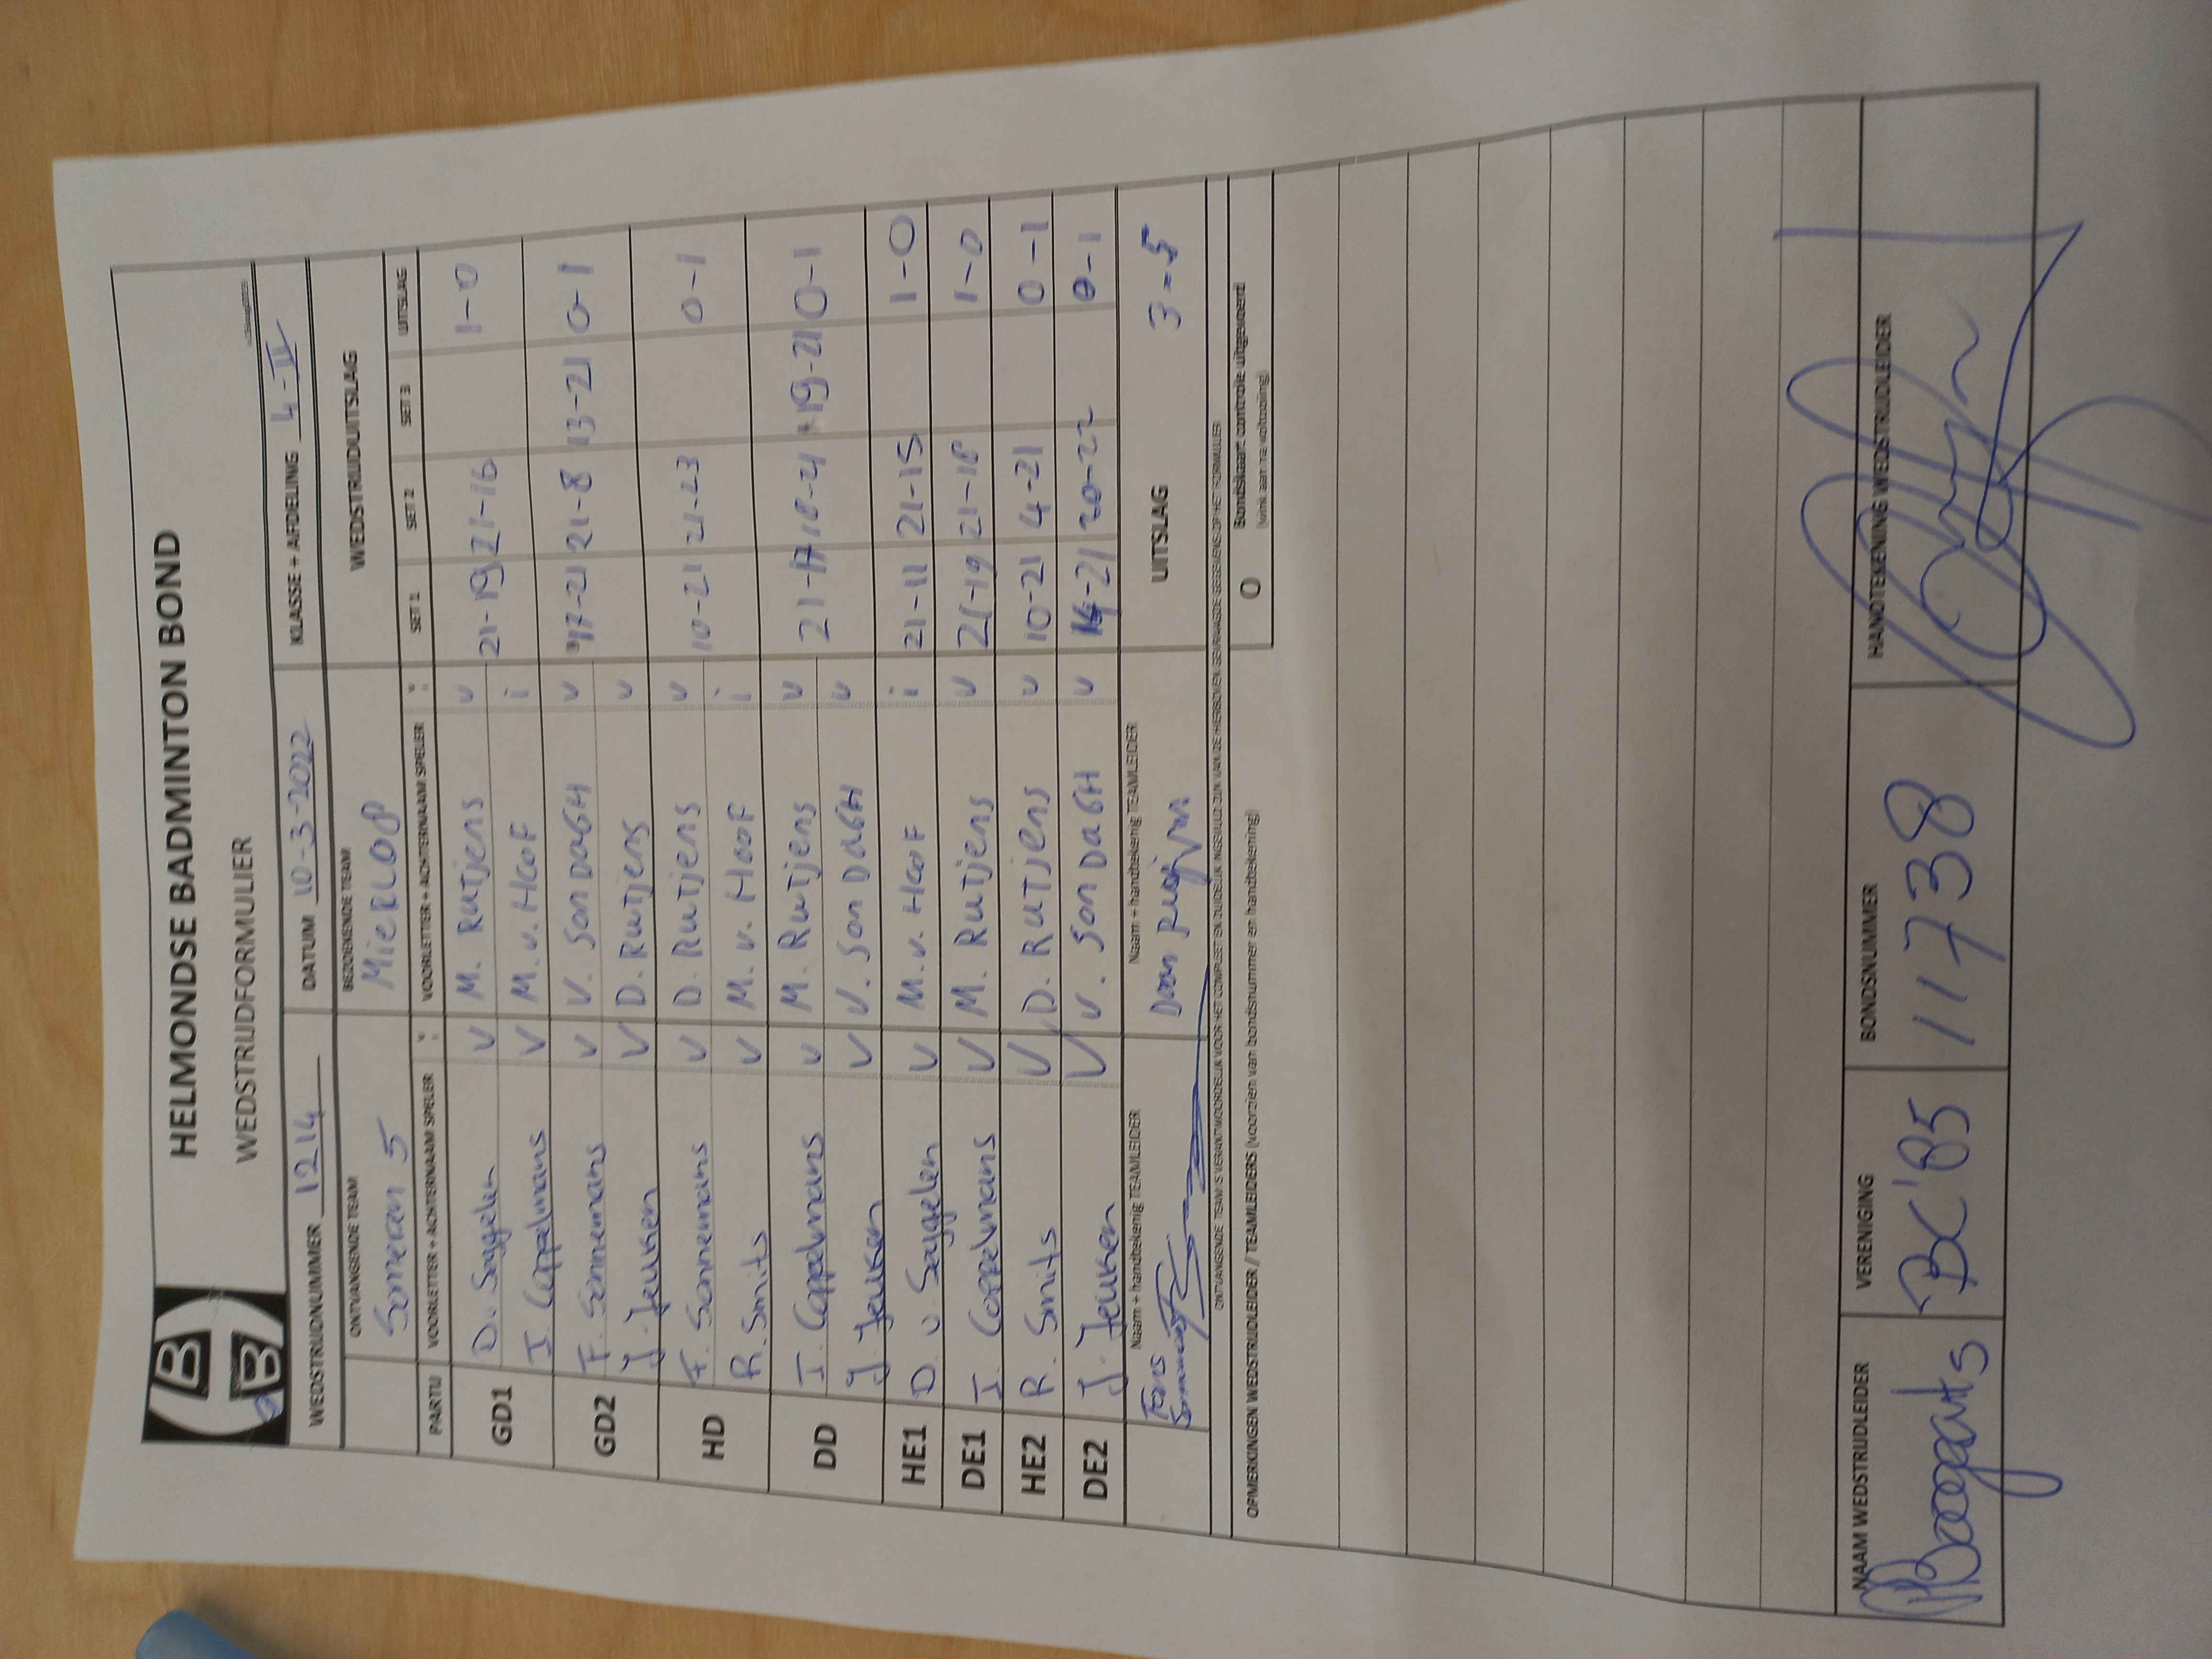 HELMONDSE BADMINTON BOND
WEDSTRIJDFORMULIER
WEDSTRIJDNUMMER 1214 DATUM 10-3-2022 KLASSE + AFDELING 4-II
ONTVANGENDE TEAM BEZOEKENDE TEAM WEDSTRIJDUITSLAG
Someren 5 MierLO8
PARTIJ VOORLETTER + ACHTERNAAM SPELER VOORLETTER + ACHTERNAAM SPELER SET 1 SET 2 SET 3 UITSLAG
GD1 D.v. Saggelen V M. Rutjens v 21-19 21-16 1-0
I. Coppelmans V M. v. Hoof i
GD2 F. Sonnemans v V. SonDaGH v 17-21 21-8 13-21 0-1
J. Jeuken V D. Rutjens v
HD F. Sonnemans v D. Rutjens v 10-21 21-23 0-1
R. Smits V M. v. Hoof i
DD I. Coppelmans v M. Rutjens v 21-17 18-21 19-21 0-1
J. Jeuken V V. SonDaGH v
HE1 D. v. Saggelen V M. v. Hoof i 21-11 21-15 1-0
DE1 I. Coppelmans V M. Rutjens v 21-19 21-18 1-0
HE2 R. Smits V D. RuTJens v 10-21 4-21 0-1
DE2 J. Jeuken V V. SonDaGH v 14-21 20-22 0-1
Naam + handtekenig TEAMLEIDER Naam + handtekenig TEAMLEIDER UITSLAG 3-5
ONTVANGENDE TEAM IS VERANTWOORDELIJK VOOR HET COMPLEET EN DUIDELIJK INGEVULD ZIJN VAN DE HIERBOVEN GEVRAAGDE GEGEVENS OP HET FORMULIER
OPMERKINGEN WEDSTRIJDLEIDER / TEAMLEIDERS (voorzien van bondsnummer en handtekening) O Bondskaart controle uitgevoerd
(vink aan na voltooiing)
NAAM WEDSTRIJDLEIDER VERENIGING BONDSNUMMER HANDTEKENING WEDSTRIJDLEIDER
BC'85 11738